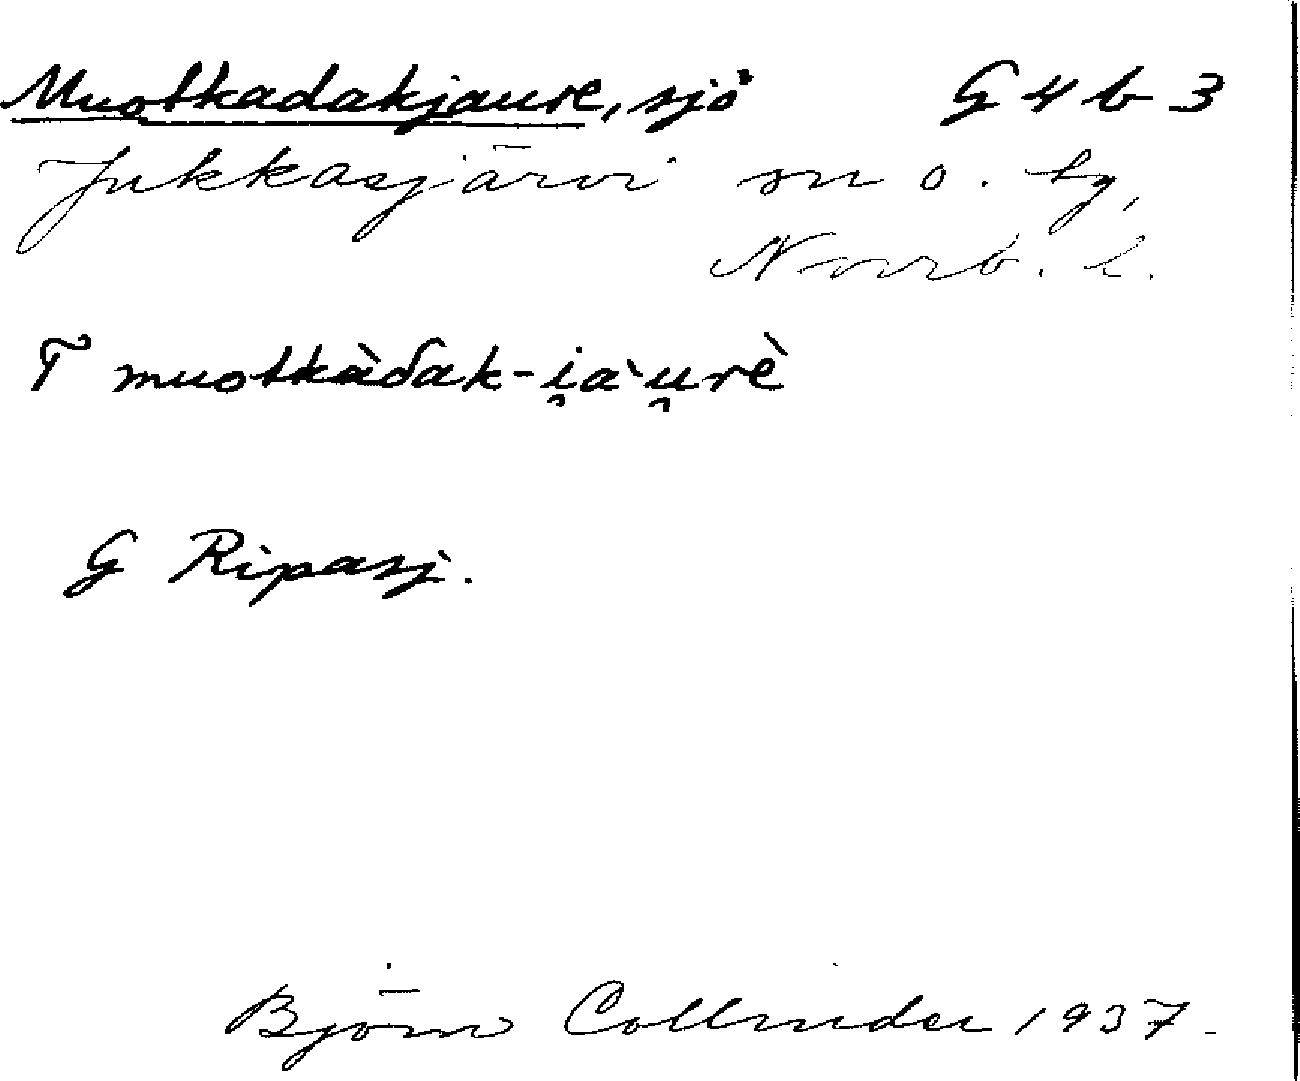 Muotkadakjaure, sjö G 4 b 3
Jukkasjärvi sn o. tg,
Norrb. l.
T muotkàδak-i̯a`u̯rè
G Ripasj.
Björn Collinder 1937.